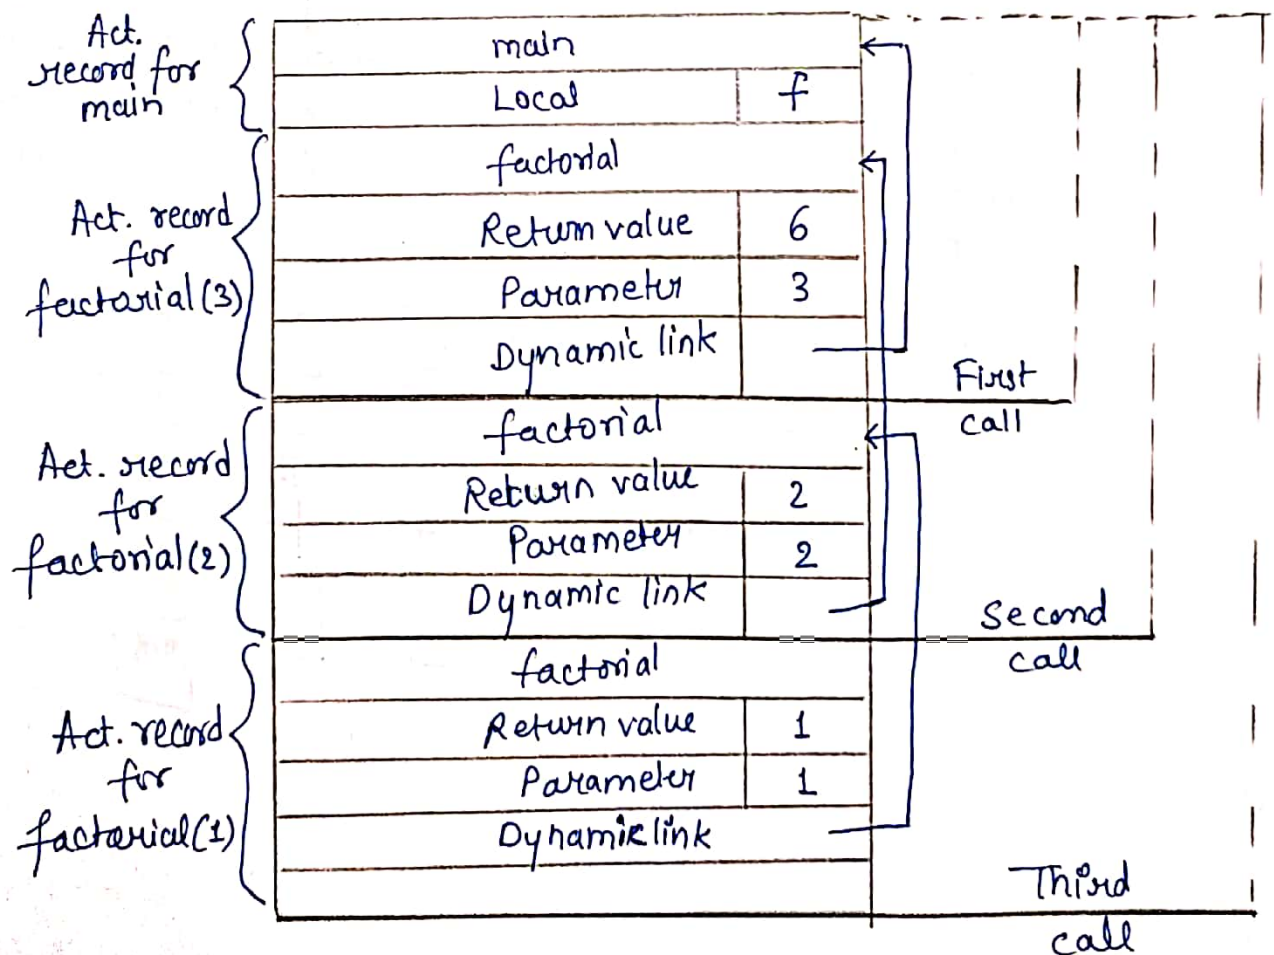 Act.
record for
main
main
Local f
Act. record
for
factarial(3)
factorial
Return value 6
Parameter 3
Dynamic link
First
call
Act. record
for
factorial(2)
factorial
Return value 2
Parameter 2
Dynamic link
Second
call
Act. record
for
factarial(1)
factorial
Return value 1
Parameter 1
Dynamic link
Third
call